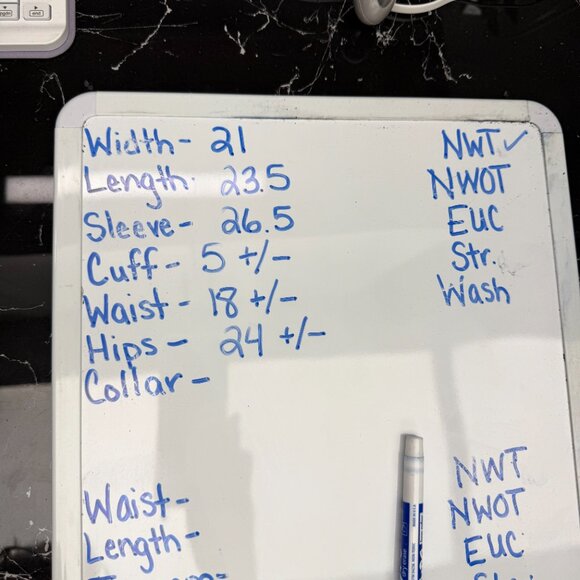 Width- 21
Length- 23.5
Sleeve- 26.5
Cuff- 5 +/-
Waist- 18 +/-
Hips- 24 +/-
Collar-
NWT ✓
NWOT
EUC
Str.
Wash
Waist-
Length-
NWT
NWOT
EUC